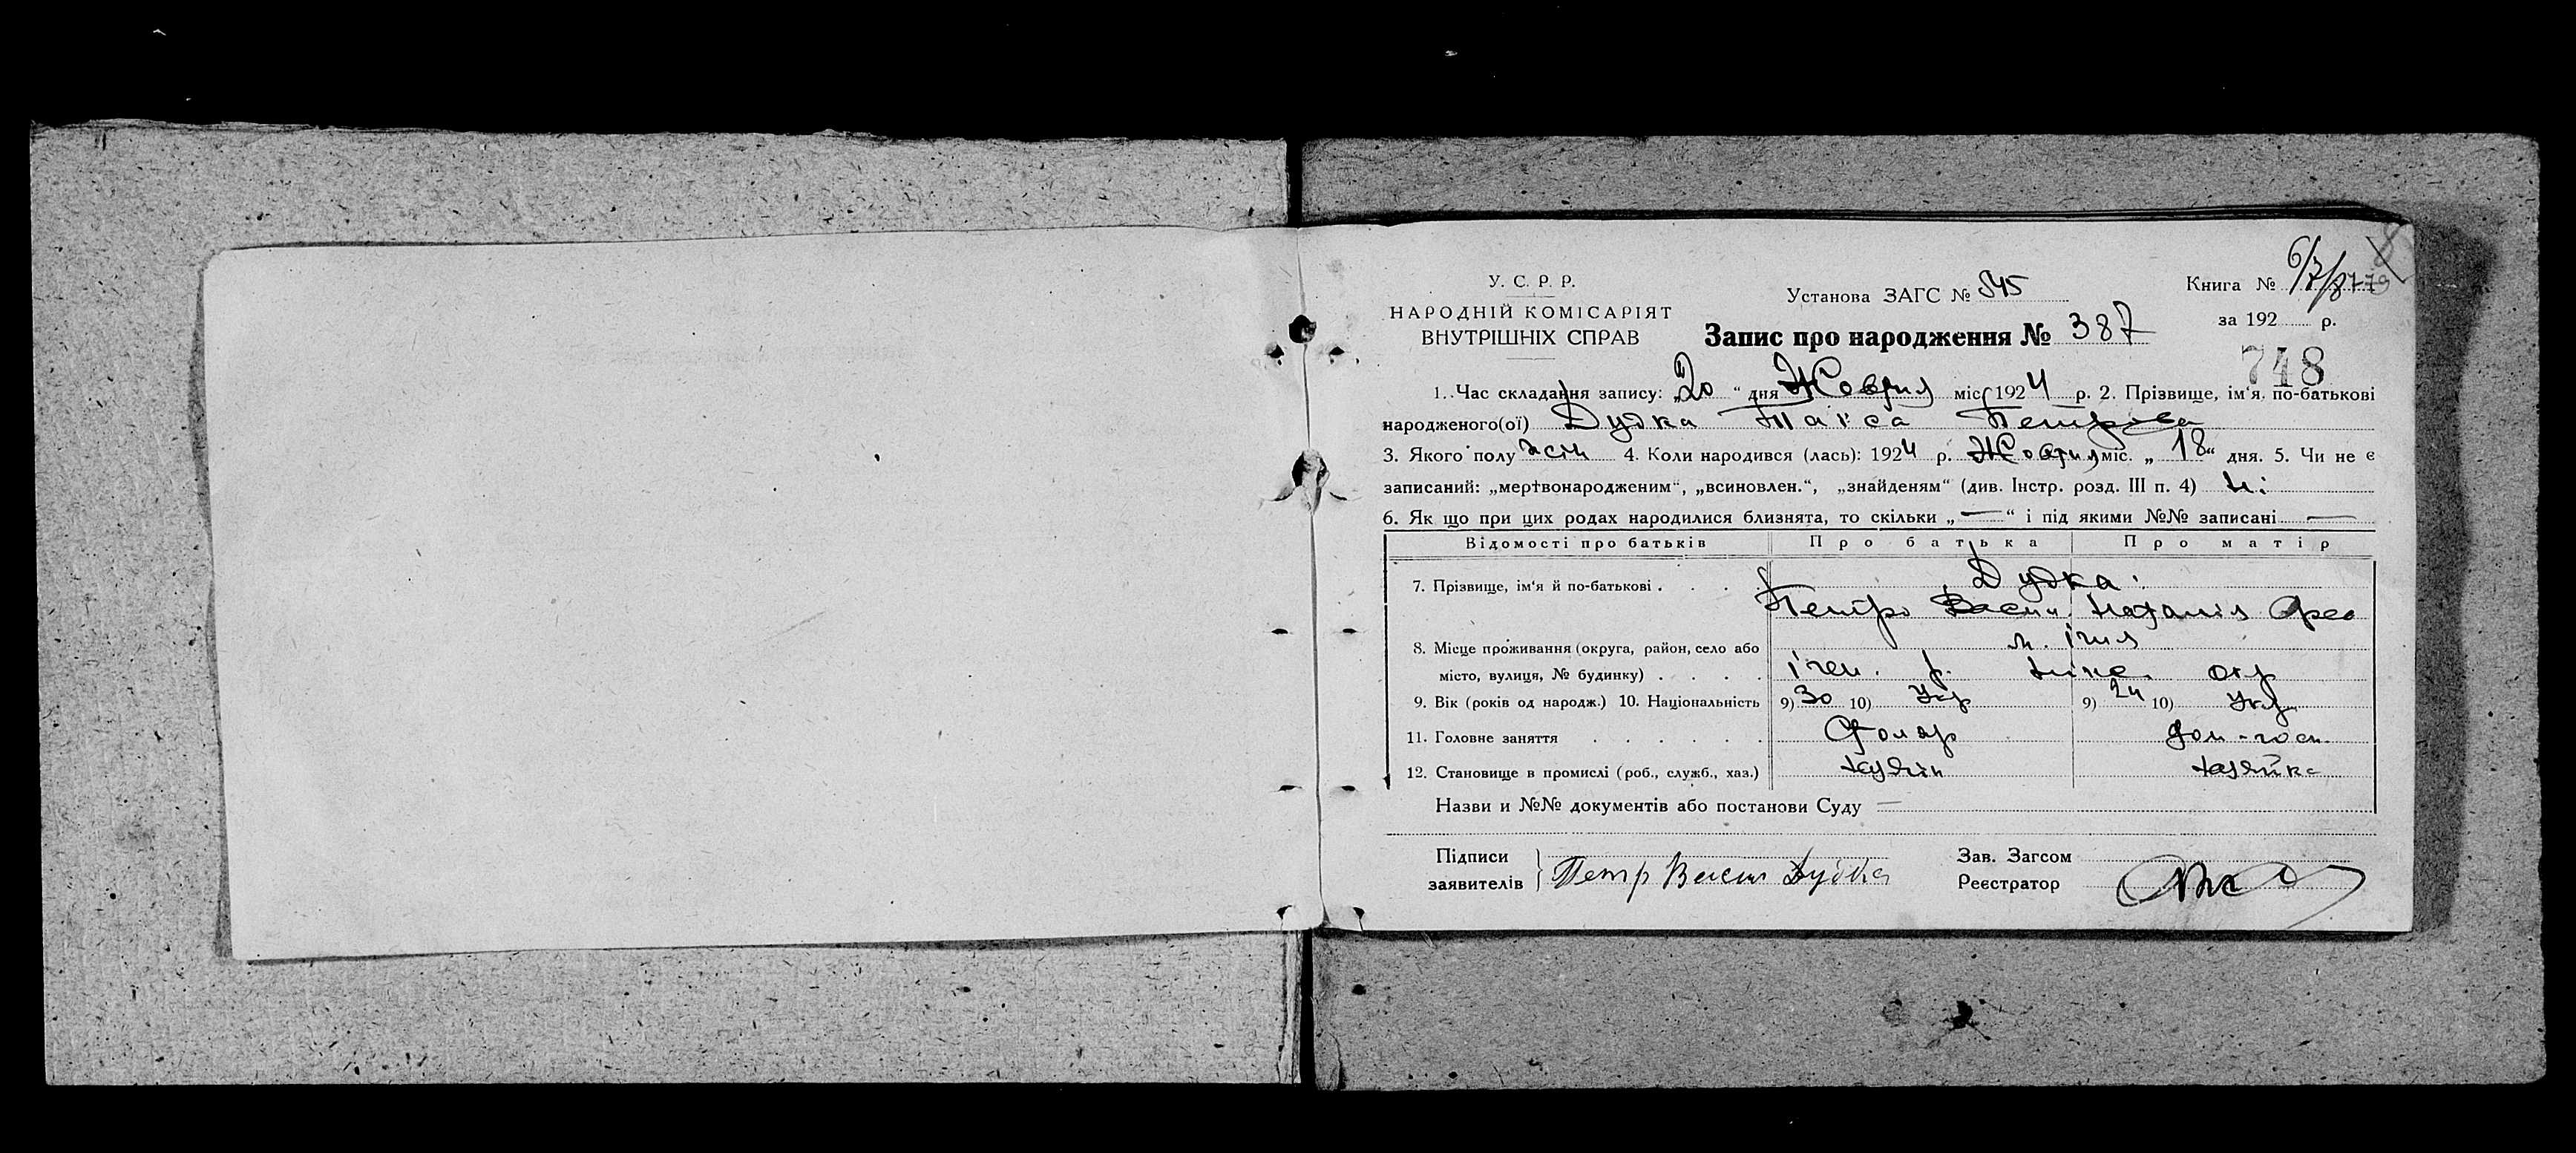 У. С. Р. Р.
НАРОДНІЙ КОМІСАРІЯТ
ВНУТРІШНІХ СПРАВ
Установа ЗАГС № 845
Книга №
за 192 р.
Запис про народження № 387
748
1. Час складання запису: „20“ дня Жовтня міс. 1924 р. 2. Прізвище, ім‘я, по-батькові
народженого(ої) Дудка Таїса Петровa
3. Якого полу жін 4. Коли народився (лась): 1924 р. Жовтня міс. „18“ дня. 5. Чи не є
записаний: „мертвонародженим“, „всиновлен.“, „знайденям“ (див. Інстр. розд. III п. 4) ні
6. Як що при цих родах народилися близнята, то скільки „—“ і під якими №№ записані —
Відомості про батьків Про батька Про матір
7. Прізвище, ім‘я й по-батькові . . . . Дудка
Петро Васил. Наталія
8. Місце проживання (округа, район, село або м. Ічня
місто, вулиця, № будинку) . . . . Ічен. р. Ніже. окр
9. Вік (років од народж.) 10. Національність 9) 30 10) Укр 9) 24 10) Укр
11. Головне заняття . . . . . . Столяр дом-госп.
12. Становище в промислі (роб., служб., хаз.) хазяїн хазяйка
Назви и №№ документів або постанови Суду —
Підписи
заявителів Петр Васил Дудка
Зав. Загсом
Реєстратор